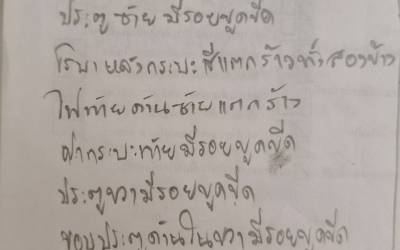 ประตูซ้ายมีรอยขูดขีด
โรบาหลังกระบะสีแตกร้าวทั้งสองข้าง
ไฟท้ายด้านซ้ายแตกร้าว
ฝากระบะท้ายมีรอยขูดขีด
ประตูขวามีรอยขูดขีด
ขอบประตูด้านในขวามีรอยขูดขีด